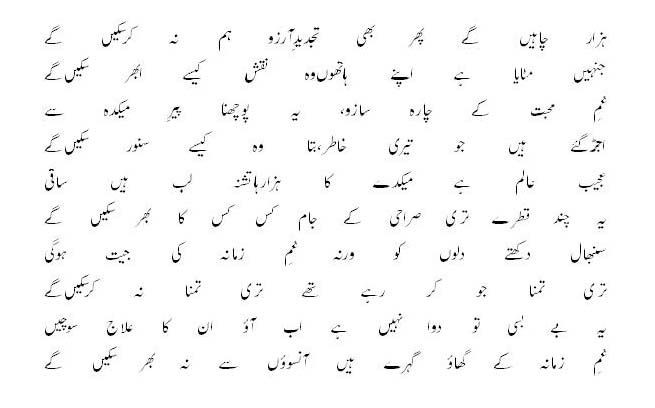 ہزار چاہیں گے پھر بھی تجدیدِآرزو ہم نہ کرسکیں گے
جنہیں مٹایا ہے اپنے ہاتھوں وہ نقش کیسے ابھر سکیں گے
غمِ محبت کے چارہ سازو، یہ پوچھنا پیرِ میکدہ سے
اجڑ گئے ہیں جو تیری خاطر، بتا وہ کیسے سنور سکیں گے
عجیب عالم ہے میکدے کا ہزارہا تشنہ لب ہیں ساقی
یہ چند قطرے تری صراحی کے جام کس کس کا بھر سکیں گے
سنبھال دکھتے دلوں کو ورنہ غمِ زمانہ کی جیت ہوگی
تری تمنا جو کر رہے تھے تری تمنا نہ کرسکیں گے
یہ بے بسی تو دوا نہیں ہے اب آؤ ان کا علاج سوچیں
غمِ زمانہ کے گھاؤ گہرے ہیں آنسوؤں سے نہ بھر سکیں گے